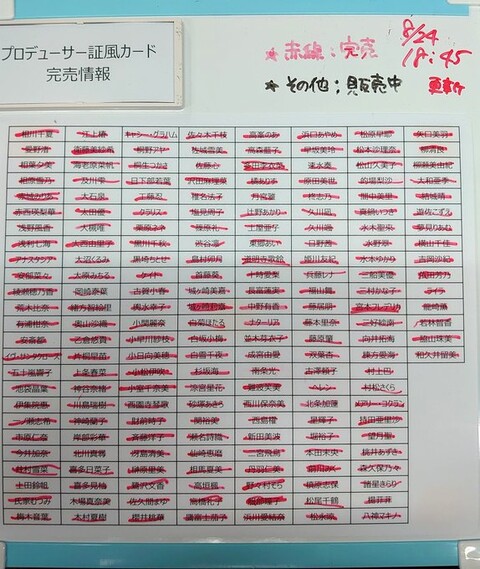 8/24
18:45
更新
プロデューサー証風カード
完売情報
★ 赤線；完売
★ その他；販売中
相川千夏 江上椿 キャシー・グラハム 佐々木千枝 高峯のあ 浜口あやめ 松原早耶 矢口美羽
愛野渚 衛藤美紗希 桐野アヤ 佐城雪美 高森藍子 早坂美玲 松本沙理奈 柳清良
相葉夕美 海老原菜帆 桐生つかさ 佐藤心 多田李衣菜 速水奏 松山久美子 柳瀬美由紀
相原雪乃 及川雫 日下部若葉 沢田麻理菜 橘ありす 原田美世 的場梨沙 大和亜季
赤城みりあ 大石泉 工藤忍 椎名法子 月宮雅 柊志乃 間中美里 結城晴
赤西瑛梨華 太田優 クラリス 塩見周子 辻野あかり 久川凪 真鍋いつき 遊佐こずえ
浅野風香 大槻唯 栗原ネネ 篠原礼 土屋亜子 久川颯 水木聖來 夢見りあむ
浅利七海 大西由里子 黒川千秋 渋谷凛 東郷あい 日野茜 水野翠 横山千佳
アナスタシア 大沼くるみ 黒埼ちとせ 島村卯月 道明寺歌鈴 姫川友紀 水本ゆかり 吉岡沙紀
安部菜々 大原みちる ケイト 首藤葵 十時愛梨 兵藤レナ 三船美優 依田芳乃
綾瀬穂乃香 岡崎泰葉 古賀小春 城ヶ崎美嘉 長富蓮実 福山舞 三村かな子 ライラ
荒木比奈 緒方智絵里 輿水幸子 城ヶ崎莉嘉 中野有香 藤居朋 宮本フレデリカ 龍崎薫
有浦柑奈 奥山沙織 小関麗奈 白菊ほたる ナターリア 藤本里奈 三好紗南 若林智香
安斎都 乙倉悠貴 小早川紗枝 白坂小梅 並木芽衣子 藤原肇 向井拓海 脇山珠美
イヴ・サンタクロース 片桐早苗 小日向美穂 白雪千夜 成宮由愛 双葉杏 棟方愛海 和久井留美
五十嵐響子 上条春菜 小松伊吹 杉坂海 南条光 古澤頼子 村上巴
池袋晶葉 神谷奈緒 小室千奈美 涼宮星花 難波笑美 ヘレン 村松さくら
伊集院惠 川島瑞樹 西園寺琴歌 砂塚あきら 西川保奈美 北条加蓮 メアリー・コクラン
一ノ瀬志希 神崎蘭子 財前時子 関裕美 西島櫂 星輝子 持田亜里沙
市原仁奈 岸部彩華 斉藤洋子 瀬名詩織 新田美波 堀裕子 望月聖
今井加奈 北川真尋 冴島清美 仙崎恵磨 二宮飛鳥 本田未央 桃井あずき
喜多日菜子 榊原里美 相馬夏美 丹羽仁美 前川みく 森久保乃々
上田鈴帆 喜多見柚 鷺沢文香 高垣楓 野々村そら 槙原志保 諸星きらり
氏家むつみ 木場真奈美 佐久間まゆ 服部瞳子 松尾千鶴 楊菲菲
梅木音葉 木村夏樹 櫻井桃華 鷹富士茄子 浜川愛結奈 松永涼 八神マキノ